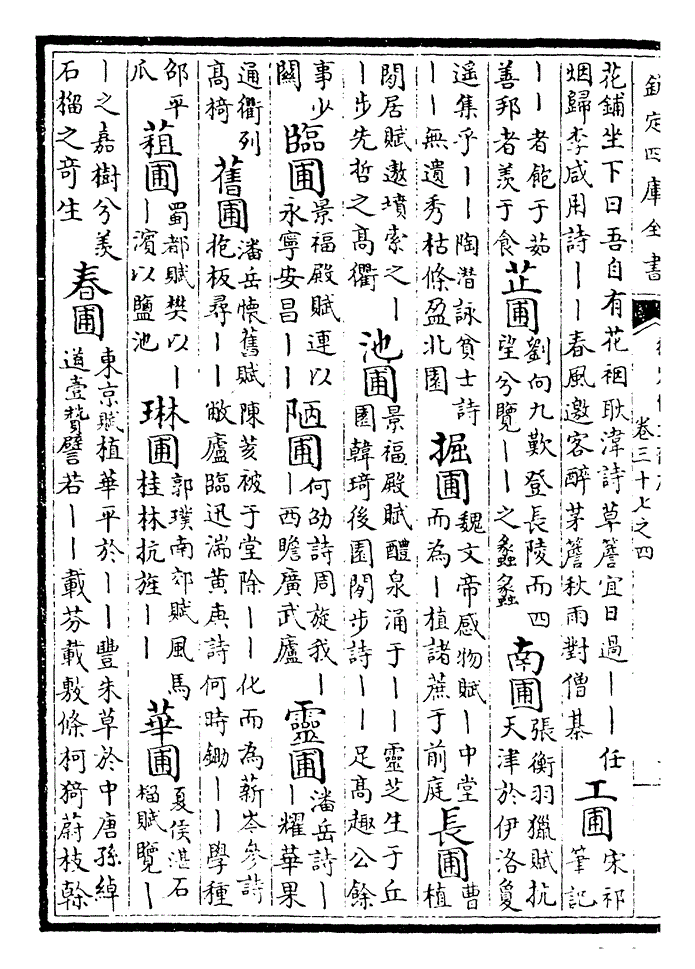 欽定四庫全書
卷三十七之四
花鋪坐下曰吾自有花裀耿湋詩草簷宜日過丨丨任
烟歸李咸用詩丨丨春風邀客醉茅簷秋雨對僧棊
工圃
宋祁
筆記
丨丨者飽于茹
善邦者羨于食
芷圃
劉向九歎登長陵而四
望兮覽丨丨之蠡蠡
南圃
張衡羽獵賦抗
天津於伊洛敻
遥集乎丨丨陶潛詠貧士詩
丨丨無遺秀枯條盈北園
掘圃
魏文帝感物賦丨中堂
而為丨植諸蔗于前庭
長圃
曹
植
閒居賦遨墳索之丨
丨步先哲之髙衢
池圃
景福殿賦醴泉涌于丨丨靈芝生于丘
園韓琦後園閒步詩丨丨足髙趣公餘
事少
闗
臨圃
景福殿賦連以
永寧安昌丨丨
陋圃
何劭詩周旋我丨
丨西瞻廣武廬
靈圃
潘岳詩丨
丨耀華果
通衢列
髙椅
舊圃
潘岳懷舊賦陳荄被于堂除丨丨化而為薪岑參詩
抱板尋丨丨敝廬臨迅湍黄庚詩何時鋤丨丨學種
邵平
瓜
蒩圃
蜀都賦樊以丨
丨濱以鹽池
琳圃
郭璞南郊賦風馬
桂林抗旌丨丨
華圃
夏侯湛石
榴賦覽丨
丨之嘉樹兮羡
石榴之奇生
春圃
東京賦植華平於丨丨豐朱草於中唐孫綽
道壹贊譬若丨丨載芬載敷條柯猗蔚枝榦